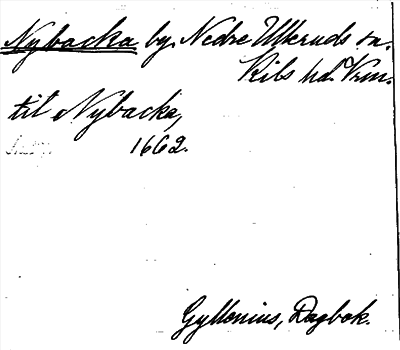 Nybacka by. Nedre Ulleruds sn.
Kils hd. Vrm.
til Nybacka,
1662.
Gyllenius, Dagbok.